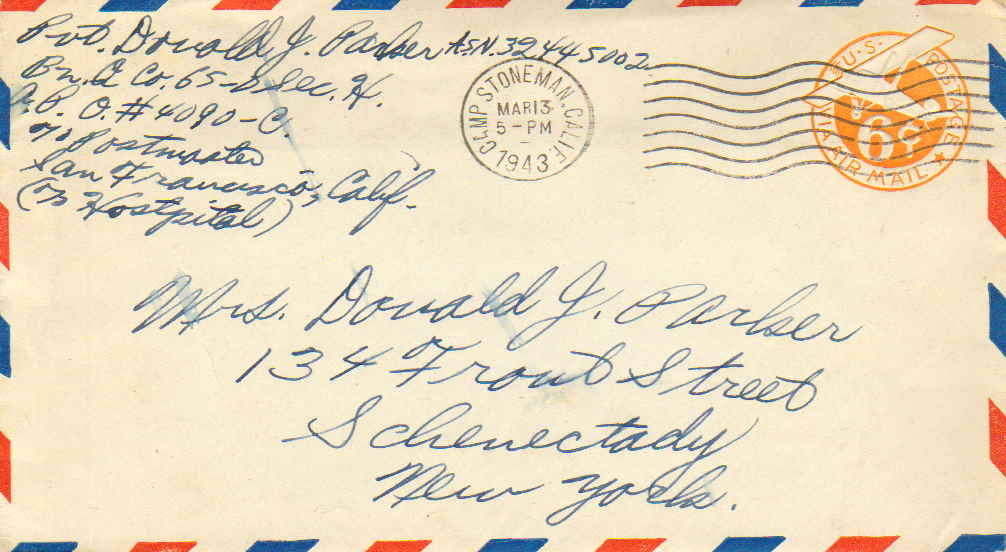 Pvt. Donald J. Parker A.S.N. 32445002
Bn. & Co. 65-D Sec. H.
A.P.O. # 4090-C
℅ Postmaster
San Francisco, Calif.
(℅ Hostpital)
CAMP STONEMAN, CALIF.
MAR 13
5-PM
1943
U.S. POSTAGE
6¢
VIA AIR MAIL
Mrs. Donald J. Parker
134 Front Street
Schenectady
New York.